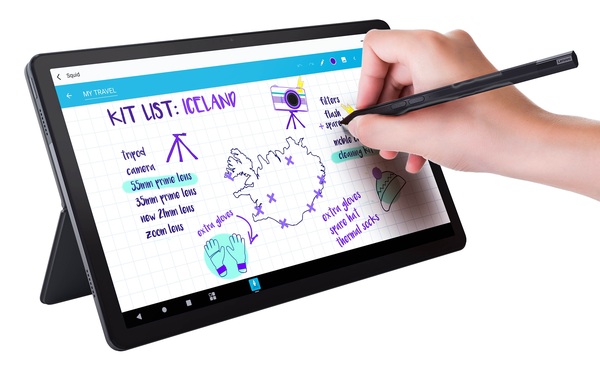 Squid
MY TRAVEL
KIT LIST: ICELAND
tripod
camera
55mm prime lens
35mm prime lens
new 21mm lens
zoom lens
extra gloves
filters
flash
+ spare
mobile
cleaning
extra gloves
spare hat
thermal socks
Lenovo